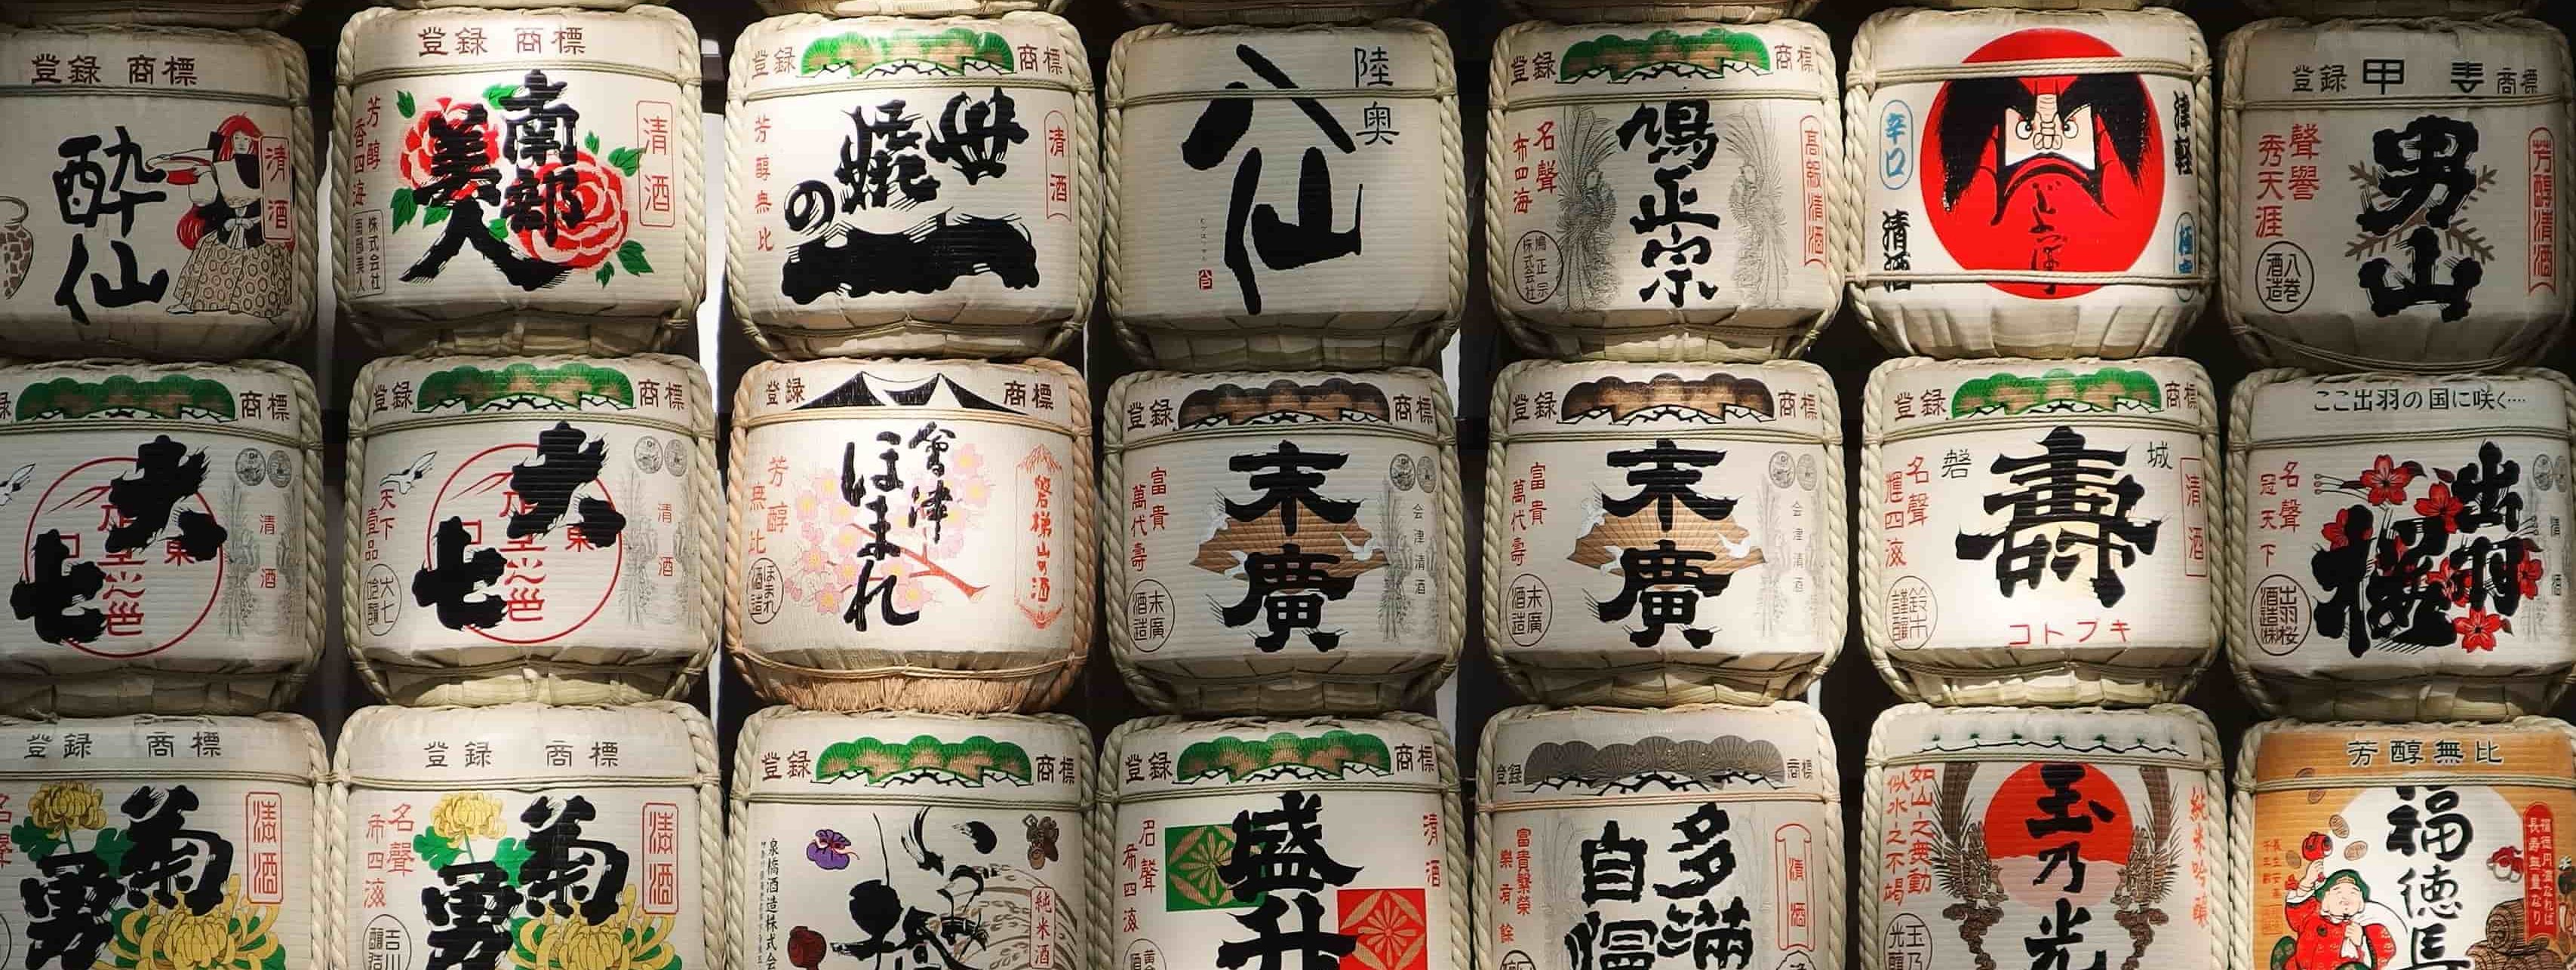 登録 商標
清酒
酔仙
登録 商標
清酒
南部
美人
芳醇
香四海
株式会社
南部美人
登録 商標
清酒
世
嬉
の
一
芳醇無比
陸奥
八仙
登録 商標
高級清酒
鳩正宗
名聲
布四海
鳩正宗
株式会社
津軽
じょっぱり
辛口
清酒
登録 甲 商標
芳醇清酒
男山
聲譽
秀天涯
八巻
酒造
録 商標
清酒
大
七
登録 商標
清酒
大
七
天下
壹品
登録 商標
磐梯山の酒
會津
ほまれ
芳醇
無比
ほまれ
酒造
登録 商標
会津清酒
末廣
富貴
萬代壽
末廣
酒造
登録 商標
会津清酒
末廣
富貴
萬代壽
末廣
酒造
登録 商標
清酒
磐城
壽
名聲
コトブキ
ここ出羽の国に咲く‥‥
清酒
出羽
桜
名聲
冠天下
出羽桜
酒造㈱
登録 商標
清酒
菊
勇
登録 商標
清酒
菊
勇
名聲
布四海
登録 商標
純米酒
泉橋酒造株式会
登録 商標
清酒
盛
升
名聲
布四海
登録 商標
清酒
多満
自慢
富貴繁榮
樂有餘
純米吟醸
玉乃光
如山之不動
似水之不竭
芳醇無比
福徳長